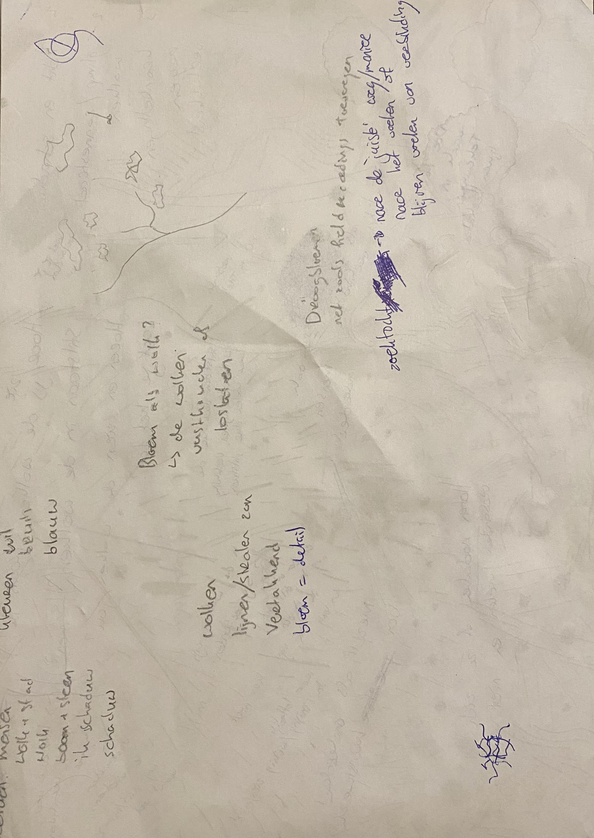 mensen
wolk + stad
wolk
boom + steen
ik schaduw
schaduw
kleuren
blauw
wolken
lijnen/stralen zon
Vertakkend
bloem = detail
Bloem als wolk?
↳ de wolken
vasthouden of
loslaten
Droogbloem
net zoals field recordings toevoegen
zoektocht → naar de 'juiste' weg/manier
naar het voelen of
blijven voelen van verbinding